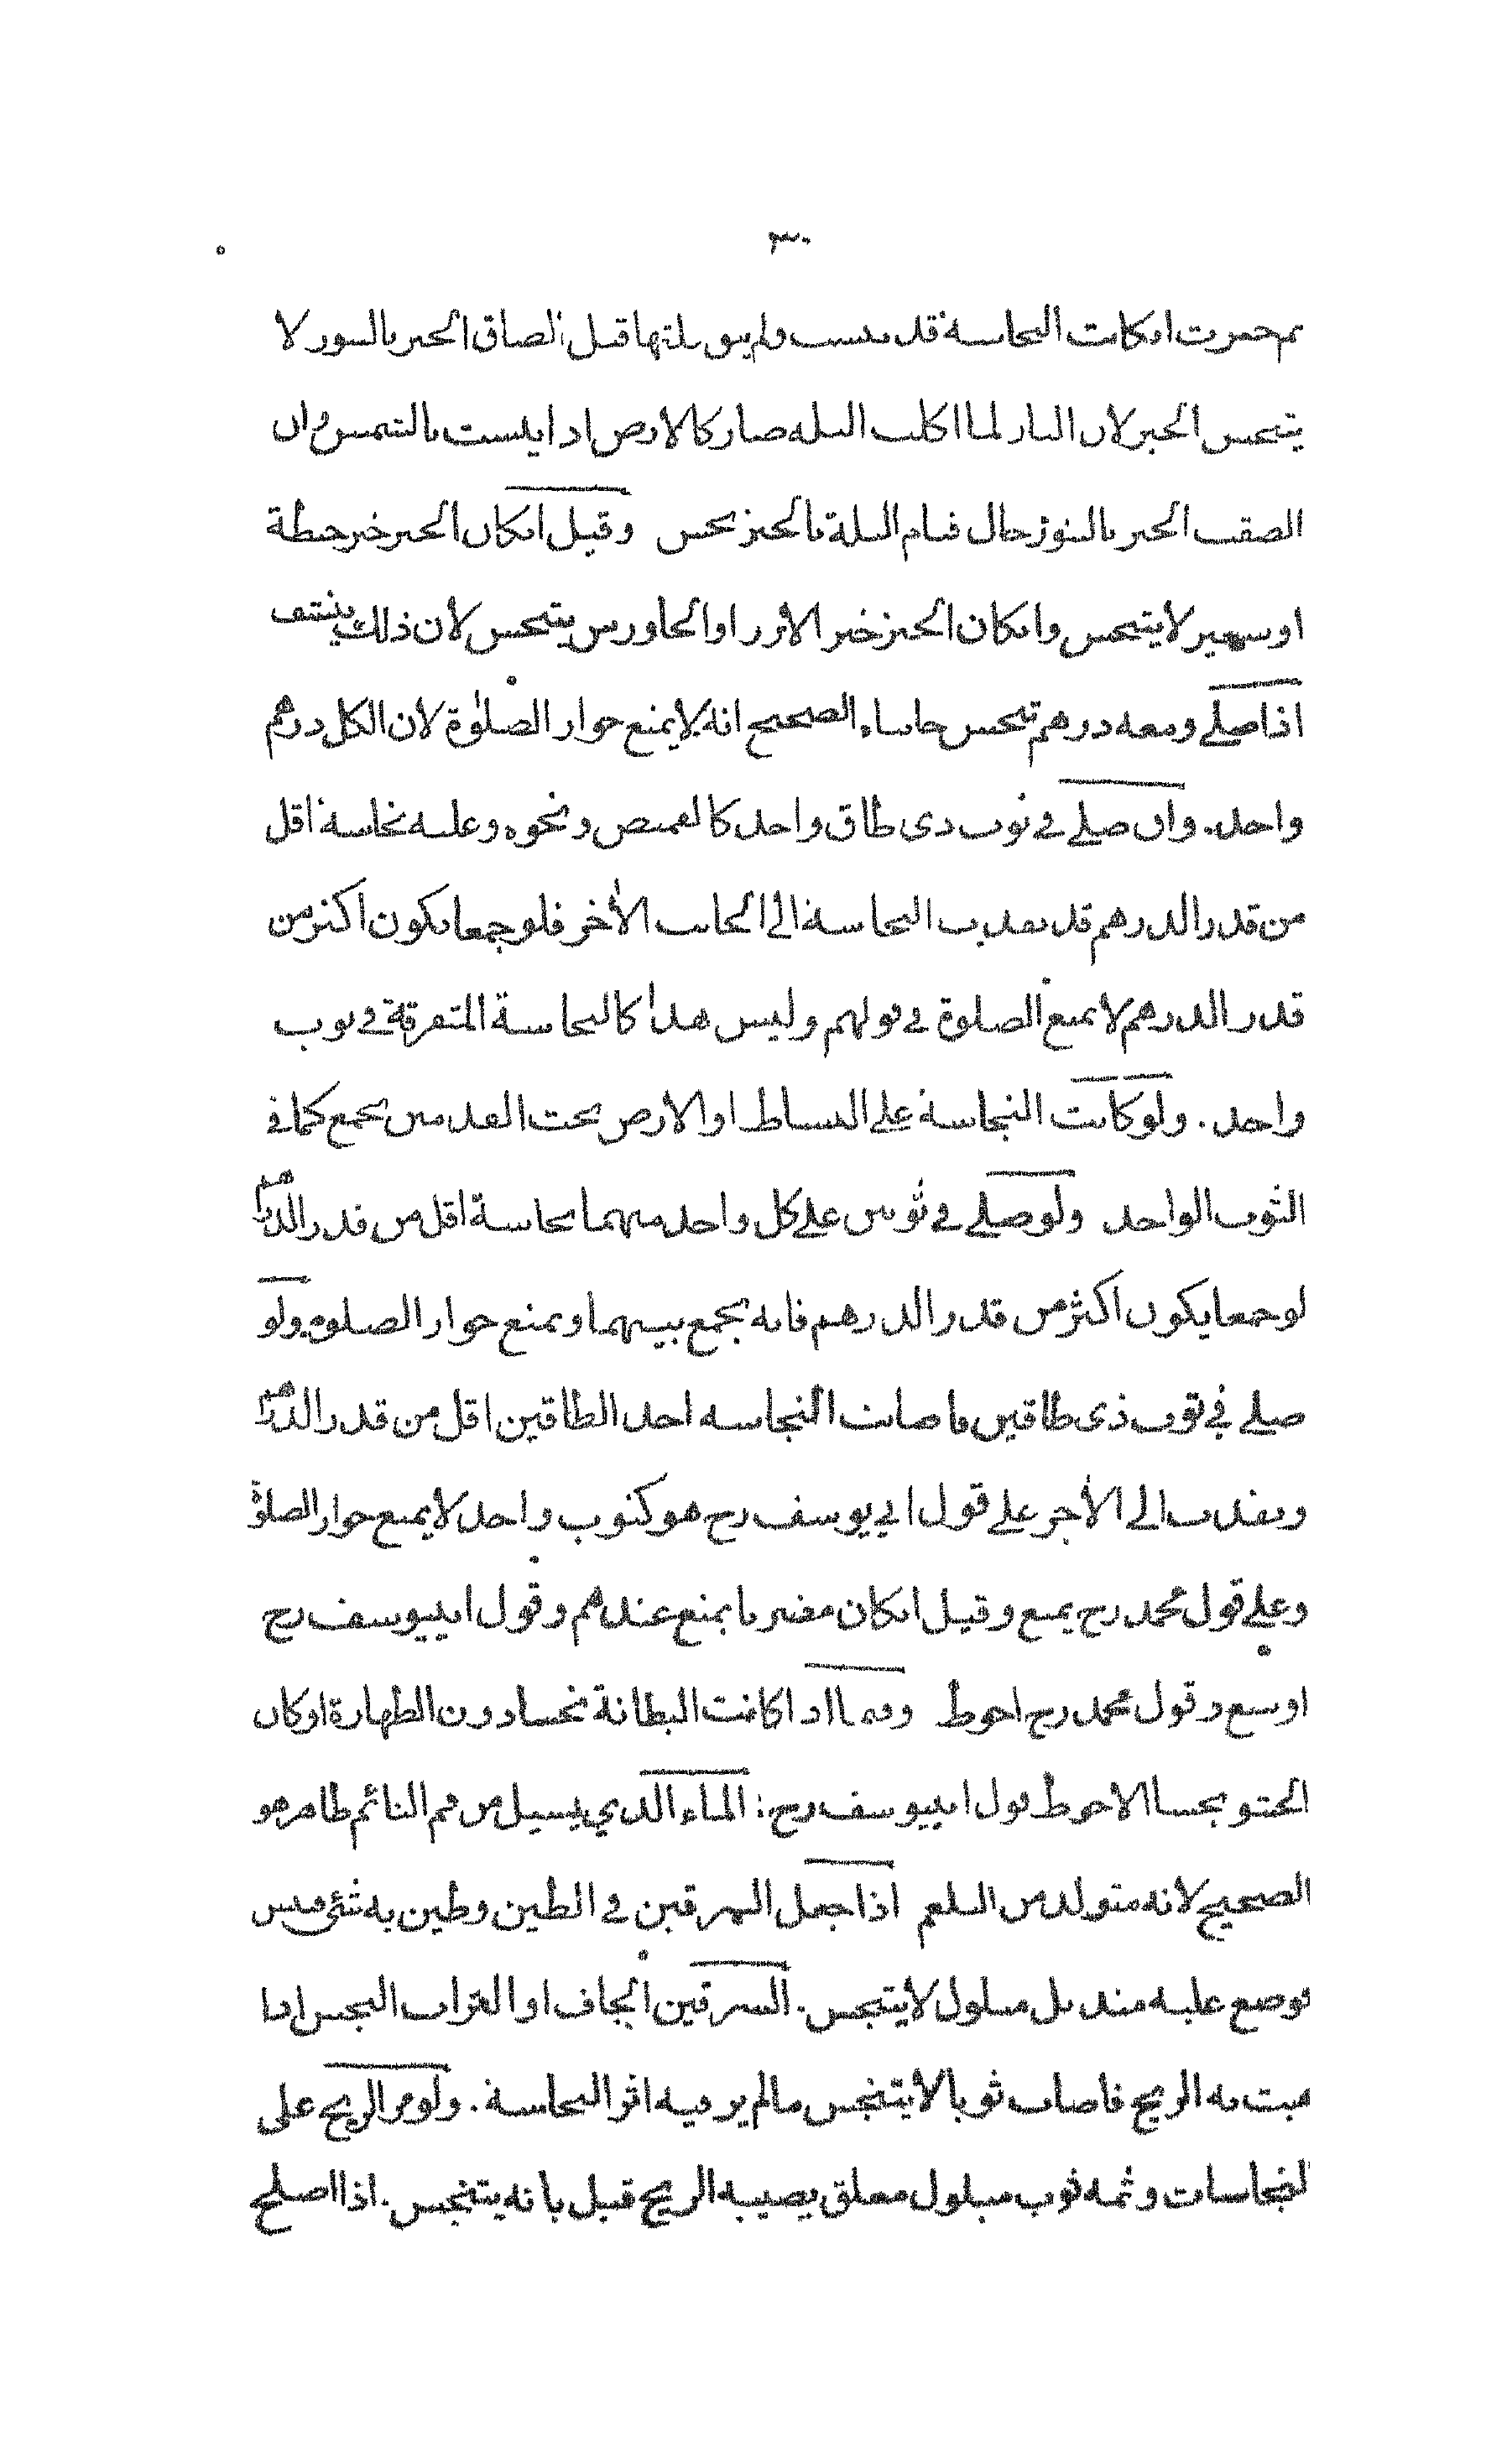 ٣٠
ثم خمرت ان كانت النجاسة قد يبست ولم يبق بلتها قبل الصاق الخبز بالتنور لا
يتنجس الخبز لان النار لما اكلت البلة صار كالارض اذا يبست بالشمس وان
الصقت الخبز بالتنور حال قيام البلة بالخبز نجس وقيل ان كان الخبز خبز حنطة
او شعير لا يتنجس وان كان الخبز خبز الارز او الجاورس يتنجس لان ذلك ينشف
اذا صلى ومعه درهم تنجس جانباه الصحيح انه لا يمنع جواز الصلوة لان الكل درهم
واحد. وان صلى في ثوب ذي طاق واحد كالقميص ونحوه وعليه نجاسة اقل
من قدر الدرهم قد نفدت النجاسة الى الجانب الاخر فلو جمعا يكون اكثر من
قدر الدرهم لا يمنع الصلوة في قولهم وليس هذا كالنجاسة المتفرقة في ثوب
واحد. ولو كانت النجاسة على البساط او الارض تحت القدمين يجمع كما في
الثوب الواحد ولو صلى في ثوبين على كل واحد منهما نجاسة اقل من قدر الدرهم
لو جمعا يكون اكثر من قدر الدرهم فانه يجمع بينهما ويمنع جواز الصلوة ولو
صلى في ثوب ذى طاقين فاصابت النجاسة احد الطاقين اقل من قدر الدرهم
ونفذت الى الآخر على قول ابي يوسف رح هو كثوب واحد لا يمنع جواز الصلوة
وعلى قول محمد رح يمنع وقيل ان كان مضربا يمنع عندهم وقول ابييوسف رح
اوسع وقول محمد رح احوط وفيما اذا كانت البطانة نجسا دون الطهارة او كان
الحشو نجسا الاحوط قول ابييوسف رح: الماء الذي يسيل من فم النائم طاهر هو
الصحيح لانه متولد من البلغم اذا جعل السرقين في الطين وطين به شئ فيبس
فوضع عليه منديل مبلول لا يتنجس. السرقين الجاف او التراب النجس اذا
هبت به الريح فاصاب ثوبا لا يتنجس مالم ير فيه اثر النجاسة. ولو مر الريح على
لنجاسات وثمه ثوب مبلول معلق يصيبه الريح قيل بانه يتنجس. اذا اصلح